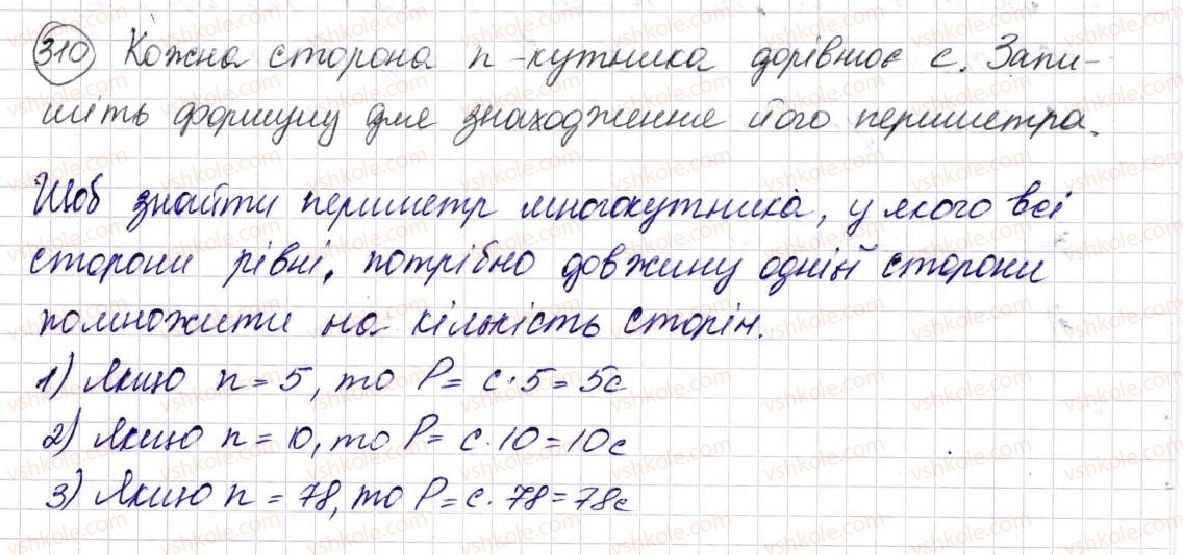 310 Кожна сторона n-кутника дорівнює c. Запи-
шіть формулу для знаходження його периметра.
Щоб знайти периметр многокутника, у якого всі
сторони рівні, потрібно довжину одній сторони
помножити на кількість сторін.
1) Якщо n = 5, то P = c · 5 = 5c
2) Якщо n = 10, то P = c · 10 = 10c
3) Якщо n = 78, то P = c · 78 = 78c